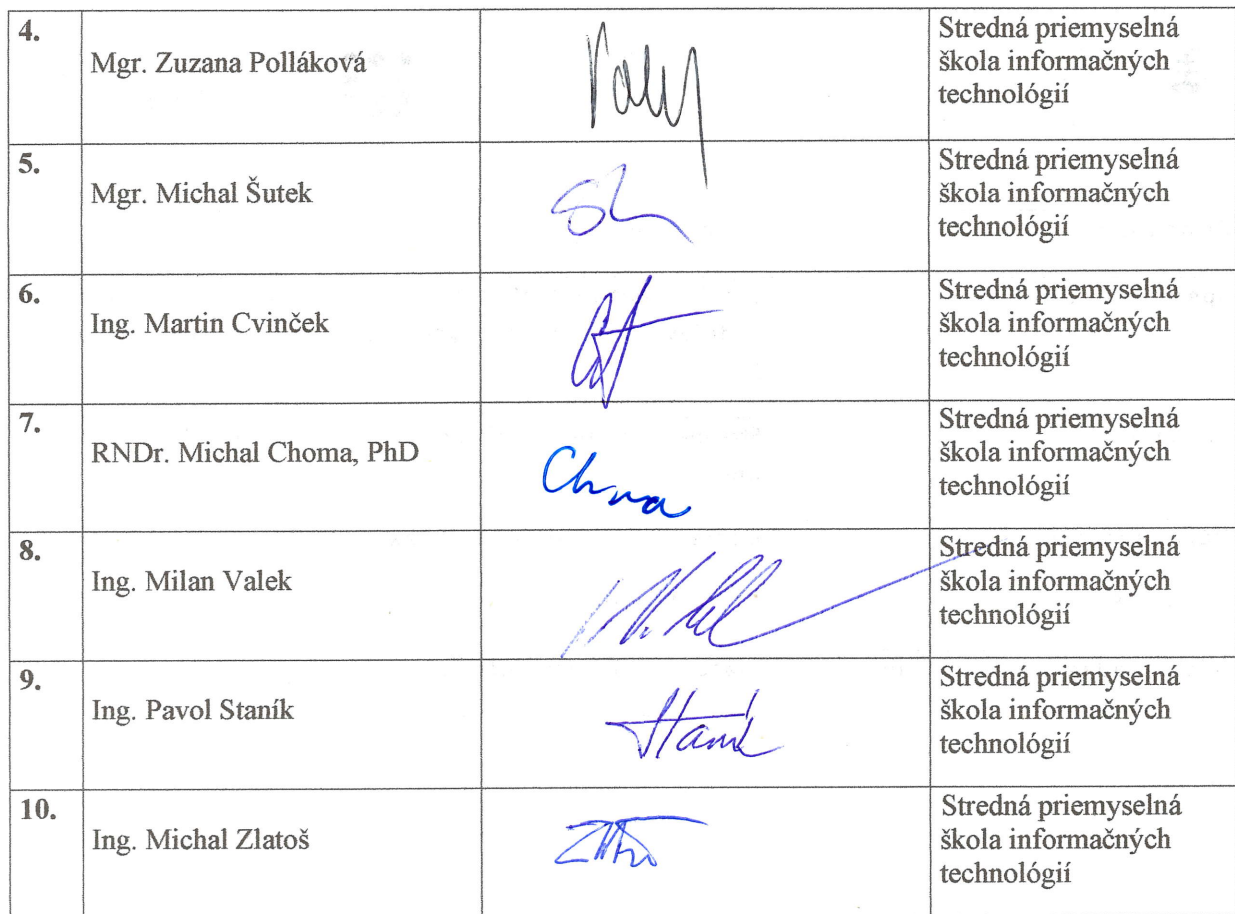 4.
Mgr. Zuzana Polláková
Stredná priemyselná
škola informačných
technológií
5.
Mgr. Michal Šutek
Stredná priemyselná
škola informačných
technológií
6.
Ing. Martin Cvinček
Stredná priemyselná
škola informačných
technológií
7.
RNDr. Michal Choma, PhD
Stredná priemyselná
škola informačných
technológií
8.
Ing. Milan Valek
Stredná priemyselná
škola informačných
technológií
9.
Ing. Pavol Staník
Stredná priemyselná
škola informačných
technológií
10.
Ing. Michal Zlatoš
Stredná priemyselná
škola informačných
technológií